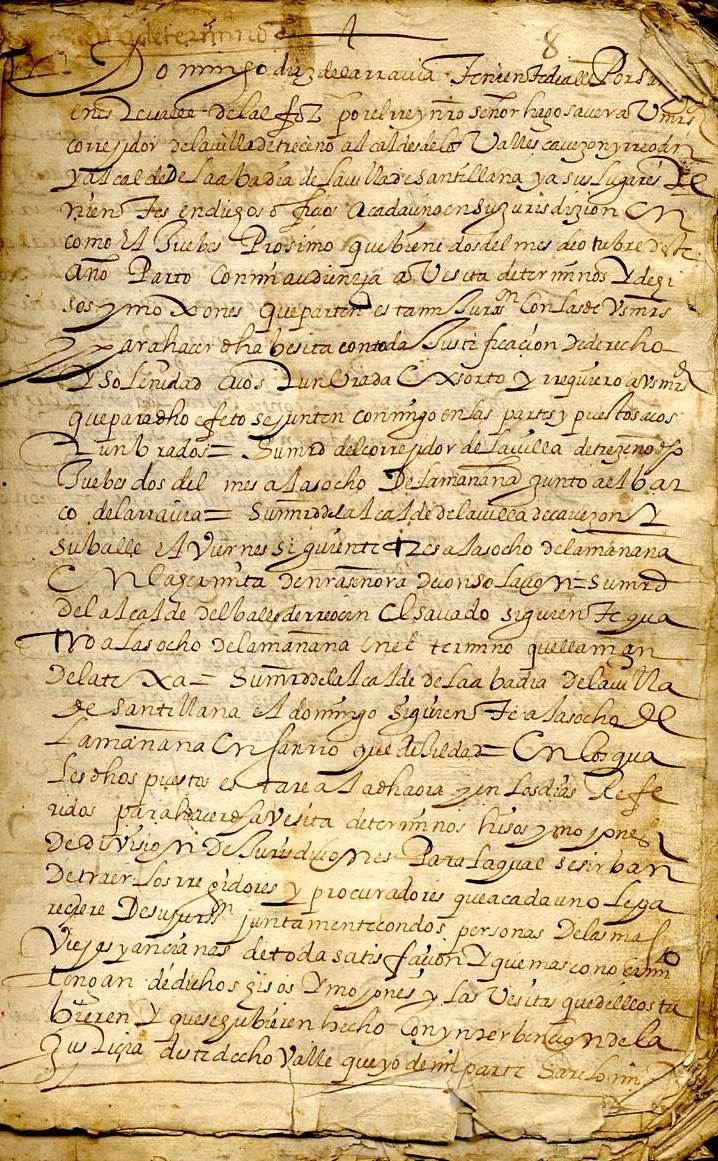 determino de 8
Domingo diaz de la rravia Teniente de alle Por su
en este valle de lal foz por el rey nro señor hago saver a Vmrs
correjidor de la villa de treceno alcaldes de los Valles cavezon y rreocin
y alcalde De La abadia de La villa de Santillana y a sus Lugares Te
nientes en dichos oficios a cada uno en su jurisdizion En
como El Juebes Prosimo que biene dos del mes de otubre deste
año Parto Con mi audiencia a Vesita de terminos Y
sos y moxones que parten esta mi Jurisn Con las de Vsmrs
y para hacer dha besita con toda Justificacion De derecho
Y Solenidad a vos Exsorto y rrequiero a vsmrds
que para dho efeto se junten conmigo en las partes y puestos acos
tunbrados = Su mrd del correjidor de La villa de trezeno
Juebes dos del mes a las ocho De la mañana junto al bar
co de la rravia = Su mrd del alcalde de la villa de cavezon Y
su balle El Viernes siguiente tres a las ocho de la mañana
En la ermita de nra señora de consolacion = Su mrd
del alcalde del balle de rreocin El Savado siguiente qua
tro a las ocho de la mañana en el termino que llaman
de la texa = Su mrd del alcalde de La abadia De la villa
de Santillana El domingo siguiente a las ocho de
La mañana En que de bildad = En los qua
Les dhos puestos estare a la dha ora y en Los dias Refe
ridos para hacer dha Vesita de terminos hisos y mojones
De division De Jurisdiciones Para la qual se sirban
De traer Los rregidores y procuradores que a cada uno Le pa
reciere De su jurisn juntamente con dos personas De las mas
Viejas y ancianas de toda satisfacion Y que mas conocimi
to tengan de dichos hisos Y mojones y Las Vesitas que dellos tu
bieren Y que se hubieren hecho Con ynterbencion de la
Justicia deste dicho Valle que yo de mi parte